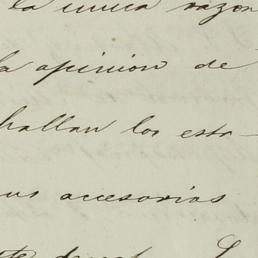 la unica razon
la opinion de
hallan los esta-
us accesorios